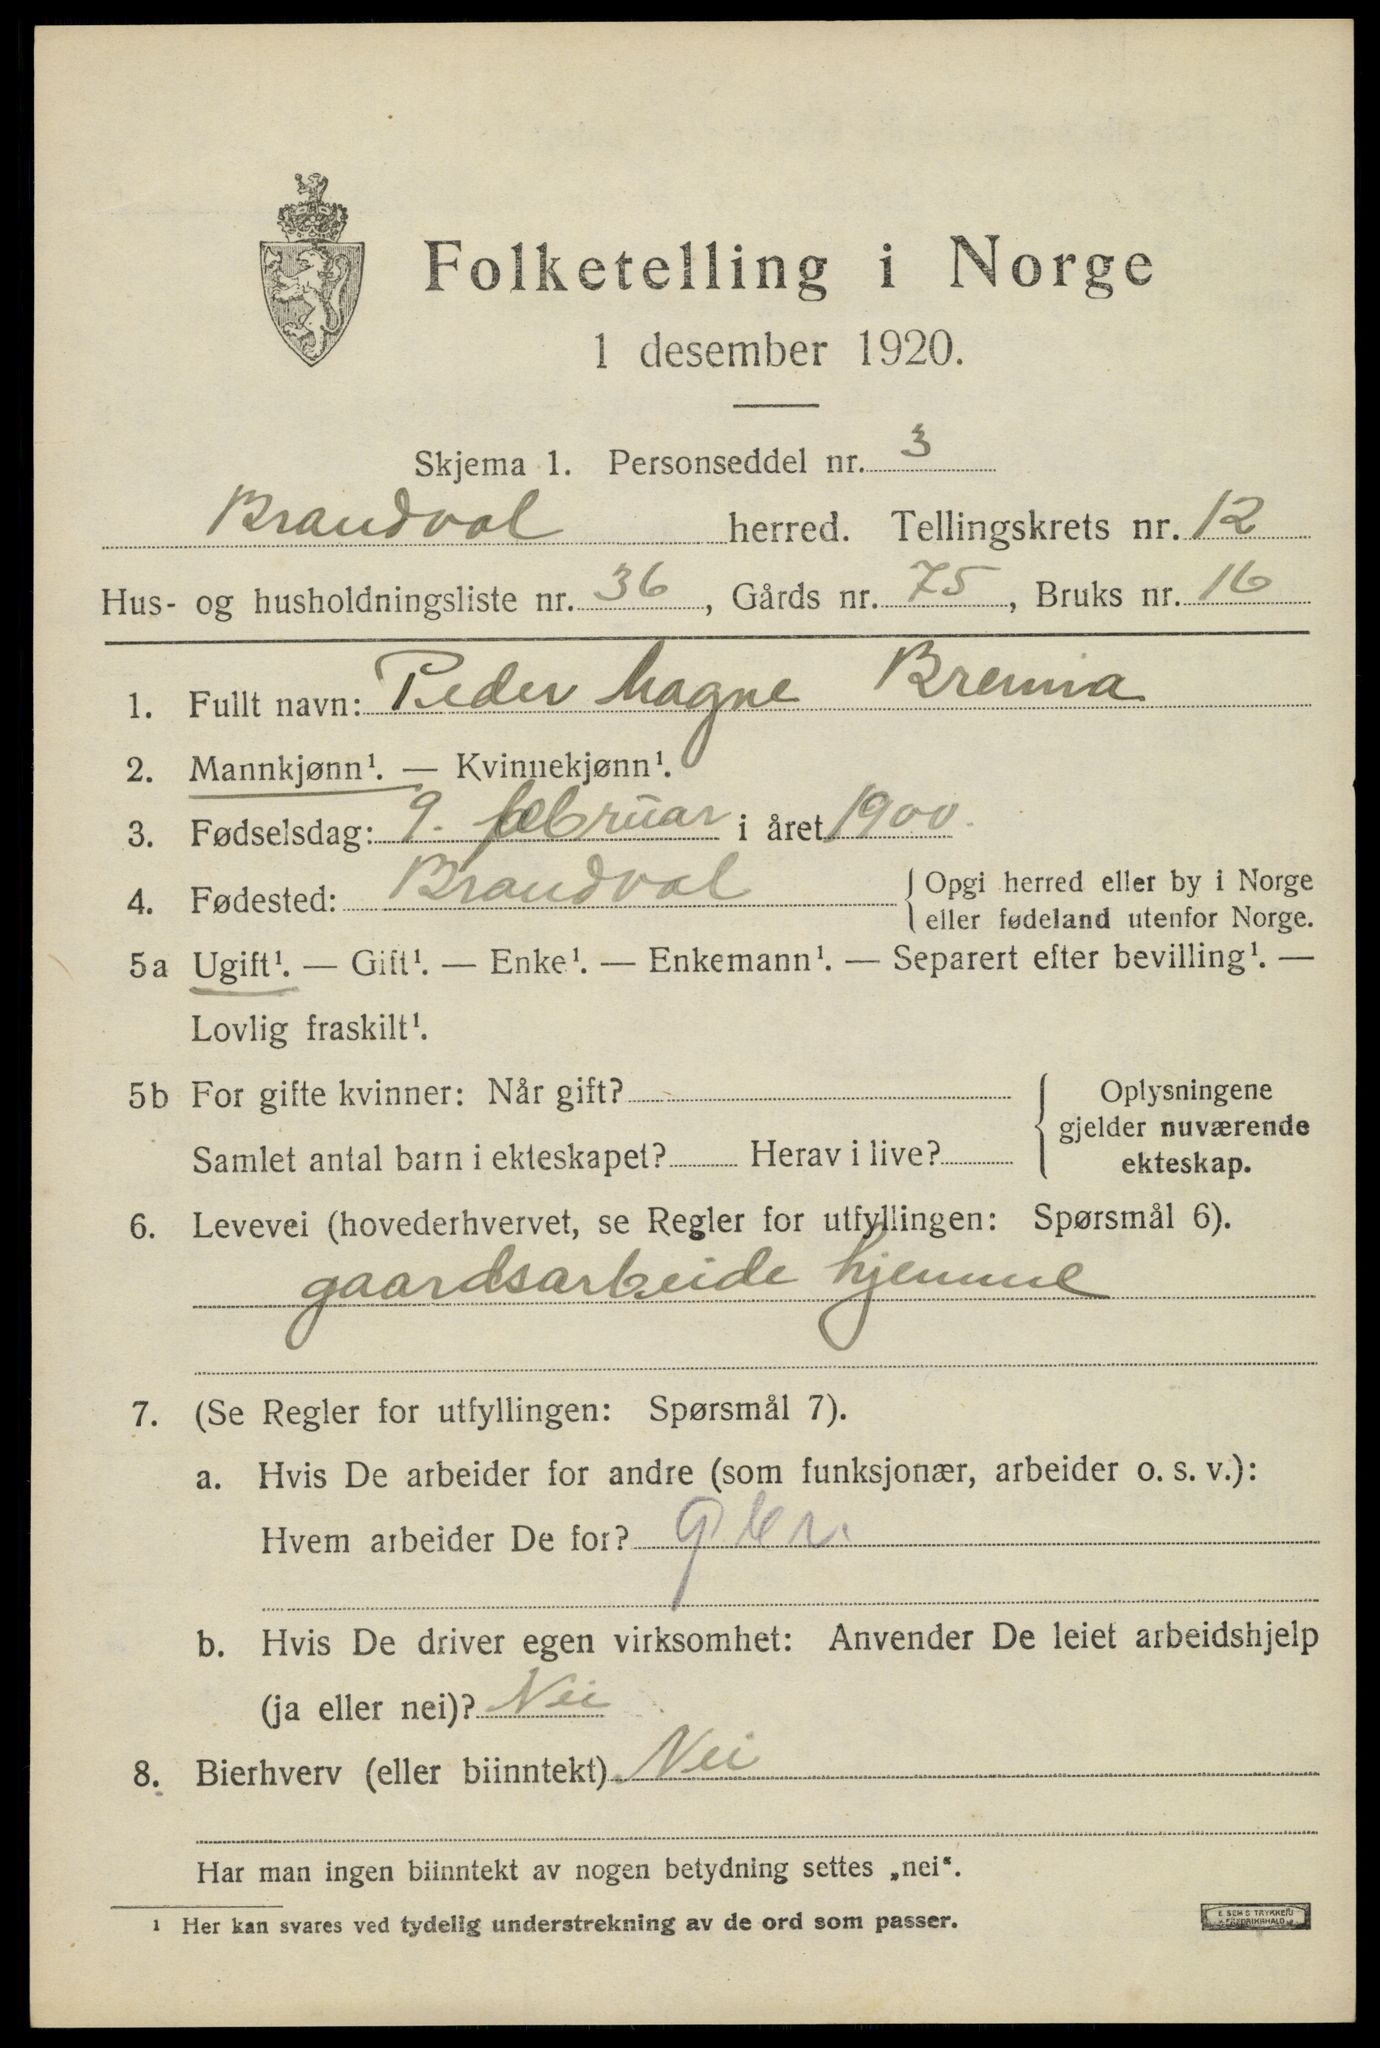 Folketelling i Norge
1 desember 1920.
Skjema 1. Personseddel nr. 3
Brandvol herred. Tellingskrets nr. 12
Hus- og husholdningsliste nr. 36, Gårds nr. 75, Bruks nr. 16
1. Fullt navn: Peder Magne Brenna
2. Mannkjønn¹. — Kvinnekjønn¹.
3. Fødselsdag: 9. februar i året 1900.
4. Fødested: Brandvol { Opgi herred eller by i Norge
eller fødeland utenfor Norge.
5a Ugift¹. — Gift¹. — Enke¹. — Enkemann¹. — Separert efter bevilling¹. —
Lovlig fraskilt¹.
5b For gifte kvinner: Når gift? { Oplysningene
gjelder nuværende
Samlet antal barn i ekteskapet? Herav i live? ekteskap.
6. Levevei (hovederhvervet, se Regler for utfyllingen: Spørsmål 6).
gaardsarbeide hjemme
7. (Se Regler for utfyllingen: Spørsmål 7).
a. Hvis De arbeider for andre (som funksjonær, arbeider o. s. v.):
Hvem arbeider De for?
b. Hvis De driver egen virksomhet: Anvender De leiet arbeidshjelp
(ja eller nei)? Nei
8. Bierhverv (eller biinntekt) Nei
Har man ingen biinntekt av nogen betydning settes „nei“.
¹ Her kan svares ved tydelig understrekning av de ord som passer.
E SEMS TRYKKERI
FREDRIKSHALD